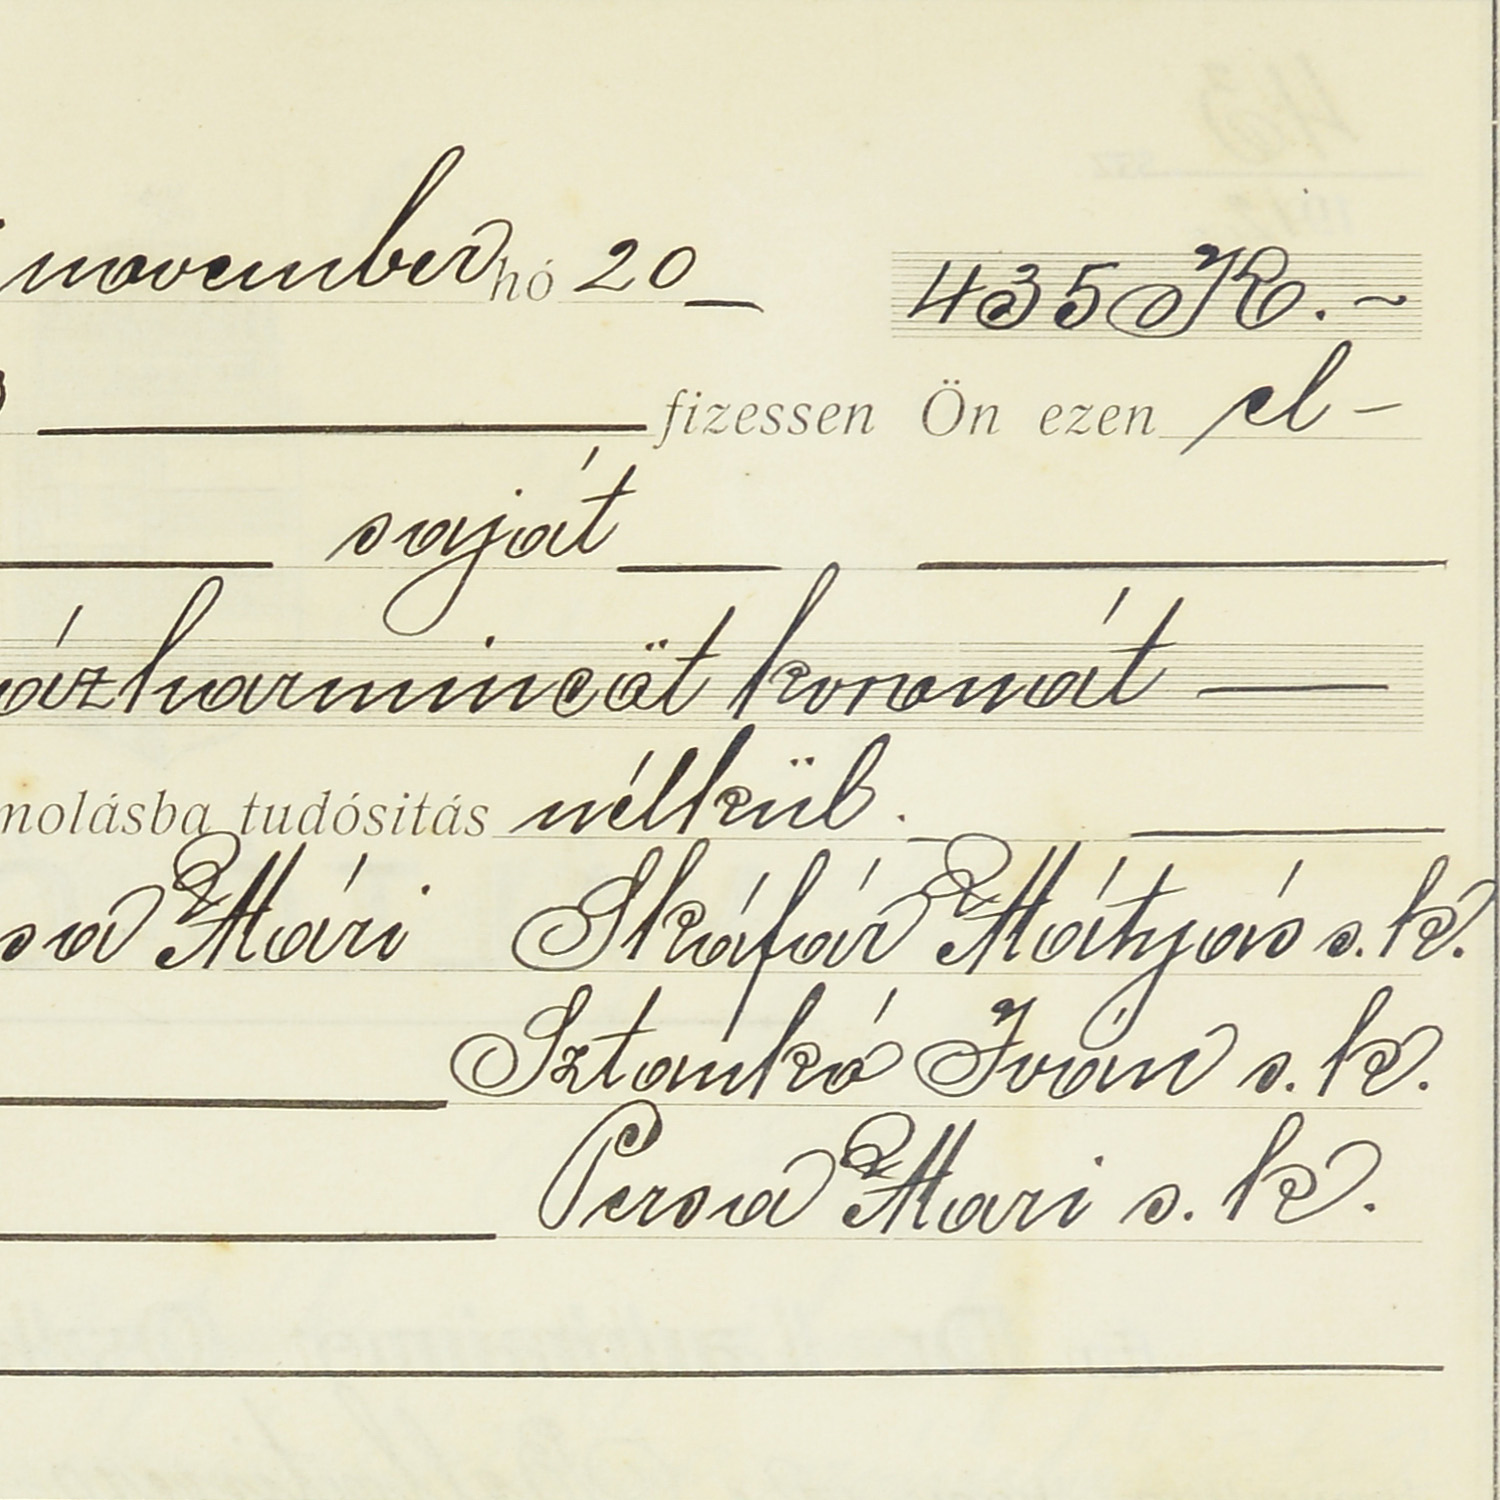 november hó 20 435 K.~
fizessen Ön ezen el-
saját
ázharmincöt koronát
molásba tudósitás nélkül.
sa Mári Skáfár Mátyás s. k.
Sztankó Iván s. k.
Persa Mari s. k.